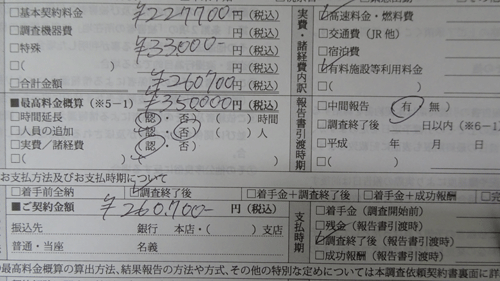 □基本契約料金 ¥227700円(税込)
□調査機器費 円(税込)
□特殊 ¥33000-円(税込)
□( ) 円(税込)
□合計金額 ¥260700円(税込)
■最高料金概算(※5−1) ¥350000円(税込)
□時間延長 (認・否)( )時間
□人員の追加 (認・否)( )人
□実費/諸経費 (認・否)
□( )
実費・諸経費内訳
□高速料金・燃料費
□交通費(JR他)
□宿泊費
□有料施設等利用料金
□( )
報告書引渡時期
□中間報告 (有・無)
□調査終了後 日以内(※6−1)
□平成 年 月 日
お支払方法及びお支払時期について
□着手前全納 □調査終了後 □着手金+調査終了後 □着手金+成功報酬 □完
■ご契約金額 ¥260.700-円(税込)
振込先 銀行 本店・( )支店
普通・当座 名義
支払時期
□着手金(調査開始前)
□残金(報告書引渡時)
□調査終了後(報告書引渡時)
□成功報酬(報告書引渡時)
の最高料金概算の算出方法、結果報告の方法や方式、その他の特別な定めについては本調査依頼契約書裏面に詳